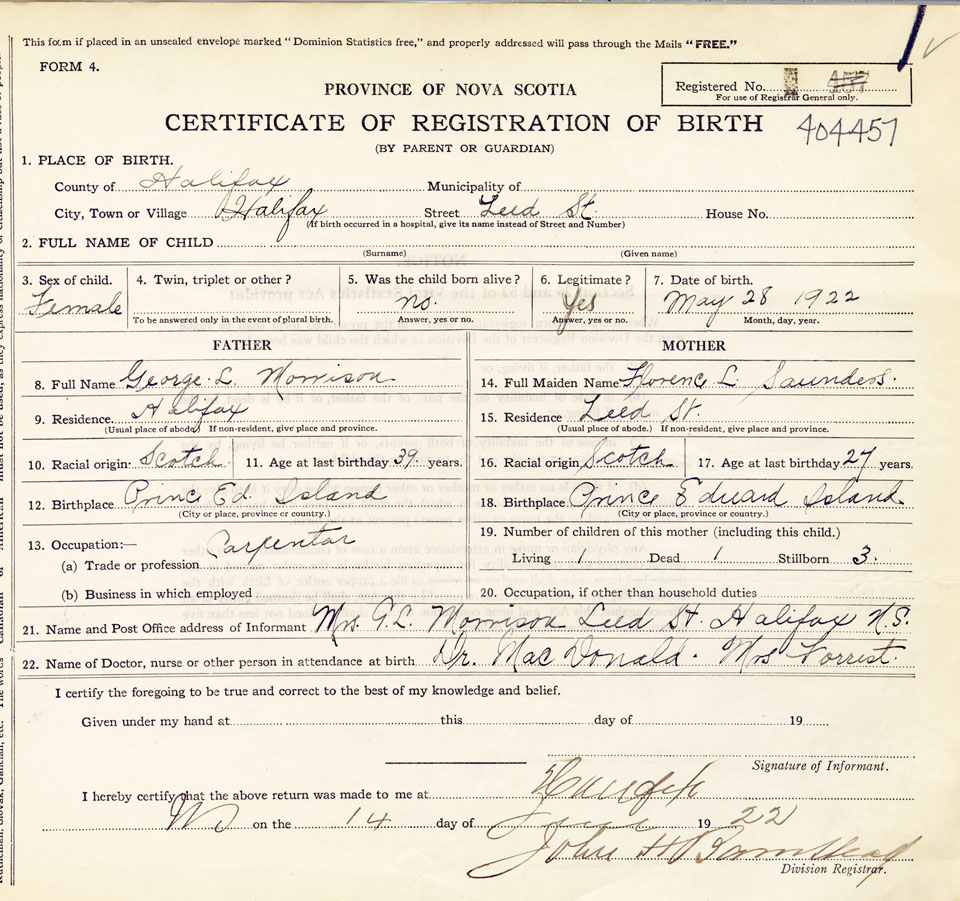 This form if placed in an unsealed envelope marked "Dominion Statistics free," and properly addressed will pass through the Mails "FREE."
FORM 4.
Registered No.
For use of Registrar General only.
PROVINCE OF NOVA SCOTIA
CERTIFICATE OF REGISTRATION OF BIRTH 404457
(BY PARENT OR GUARDIAN)
1. PLACE OF BIRTH.
County of Halifax Municipality of
City, Town or Village Halifax Street Leed St. House No.
(If birth occurred in a hospital, give its name instead of Street and Number)
2. FULL NAME OF CHILD
(Surname) (Given name)
3. Sex of child. 4. Twin, triplet or other? 5. Was the child born alive? 6. Legitimate? 7. Date of birth.
Female no. Yes May 28 1922
To be answered only in the event of plural birth. Answer, yes or no. Answer, yes or no. Month, day, year.
FATHER MOTHER
8. Full Name George L. Morrison 14. Full Maiden Name Florence L Saunders.
9. Residence. Halifax 15. Residence Leed St.
(Usual place of abode) If non-resident, give place and province. (Usual place of abode.) If non-resident, give place and province.
10. Racial origin. Scotch 11. Age at last birthday 39 years. 16. Racial origin Scotch 17. Age at last birthday 27 years.
12. Birthplace Prince Ed. Island 18. Birthplace Prince Edward Island
(City or place, province or country.) (City or place, province or country.)
13. Occupation:— Carpentar 19. Number of children of this mother (including this child.)
(a) Trade or profession Living 1 Dead 1 Stillborn 3.
(b) Business in which employed 20. Occupation, if other than household duties
21. Name and Post Office address of Informant Mrs. G.L. Morrison Leed St. Halifax N.S.
22. Name of Doctor, nurse or other person in attendance at birth Dr. MacDonald. Mrs Forrest.
I certify the foregoing to be true and correct to the best of my knowledge and belief.
Given under my hand at this day of 19
Signature of Informant.
I hereby certify that the above return was made to me at
on the 14 day of June 19 22
John H
Division Registrar.